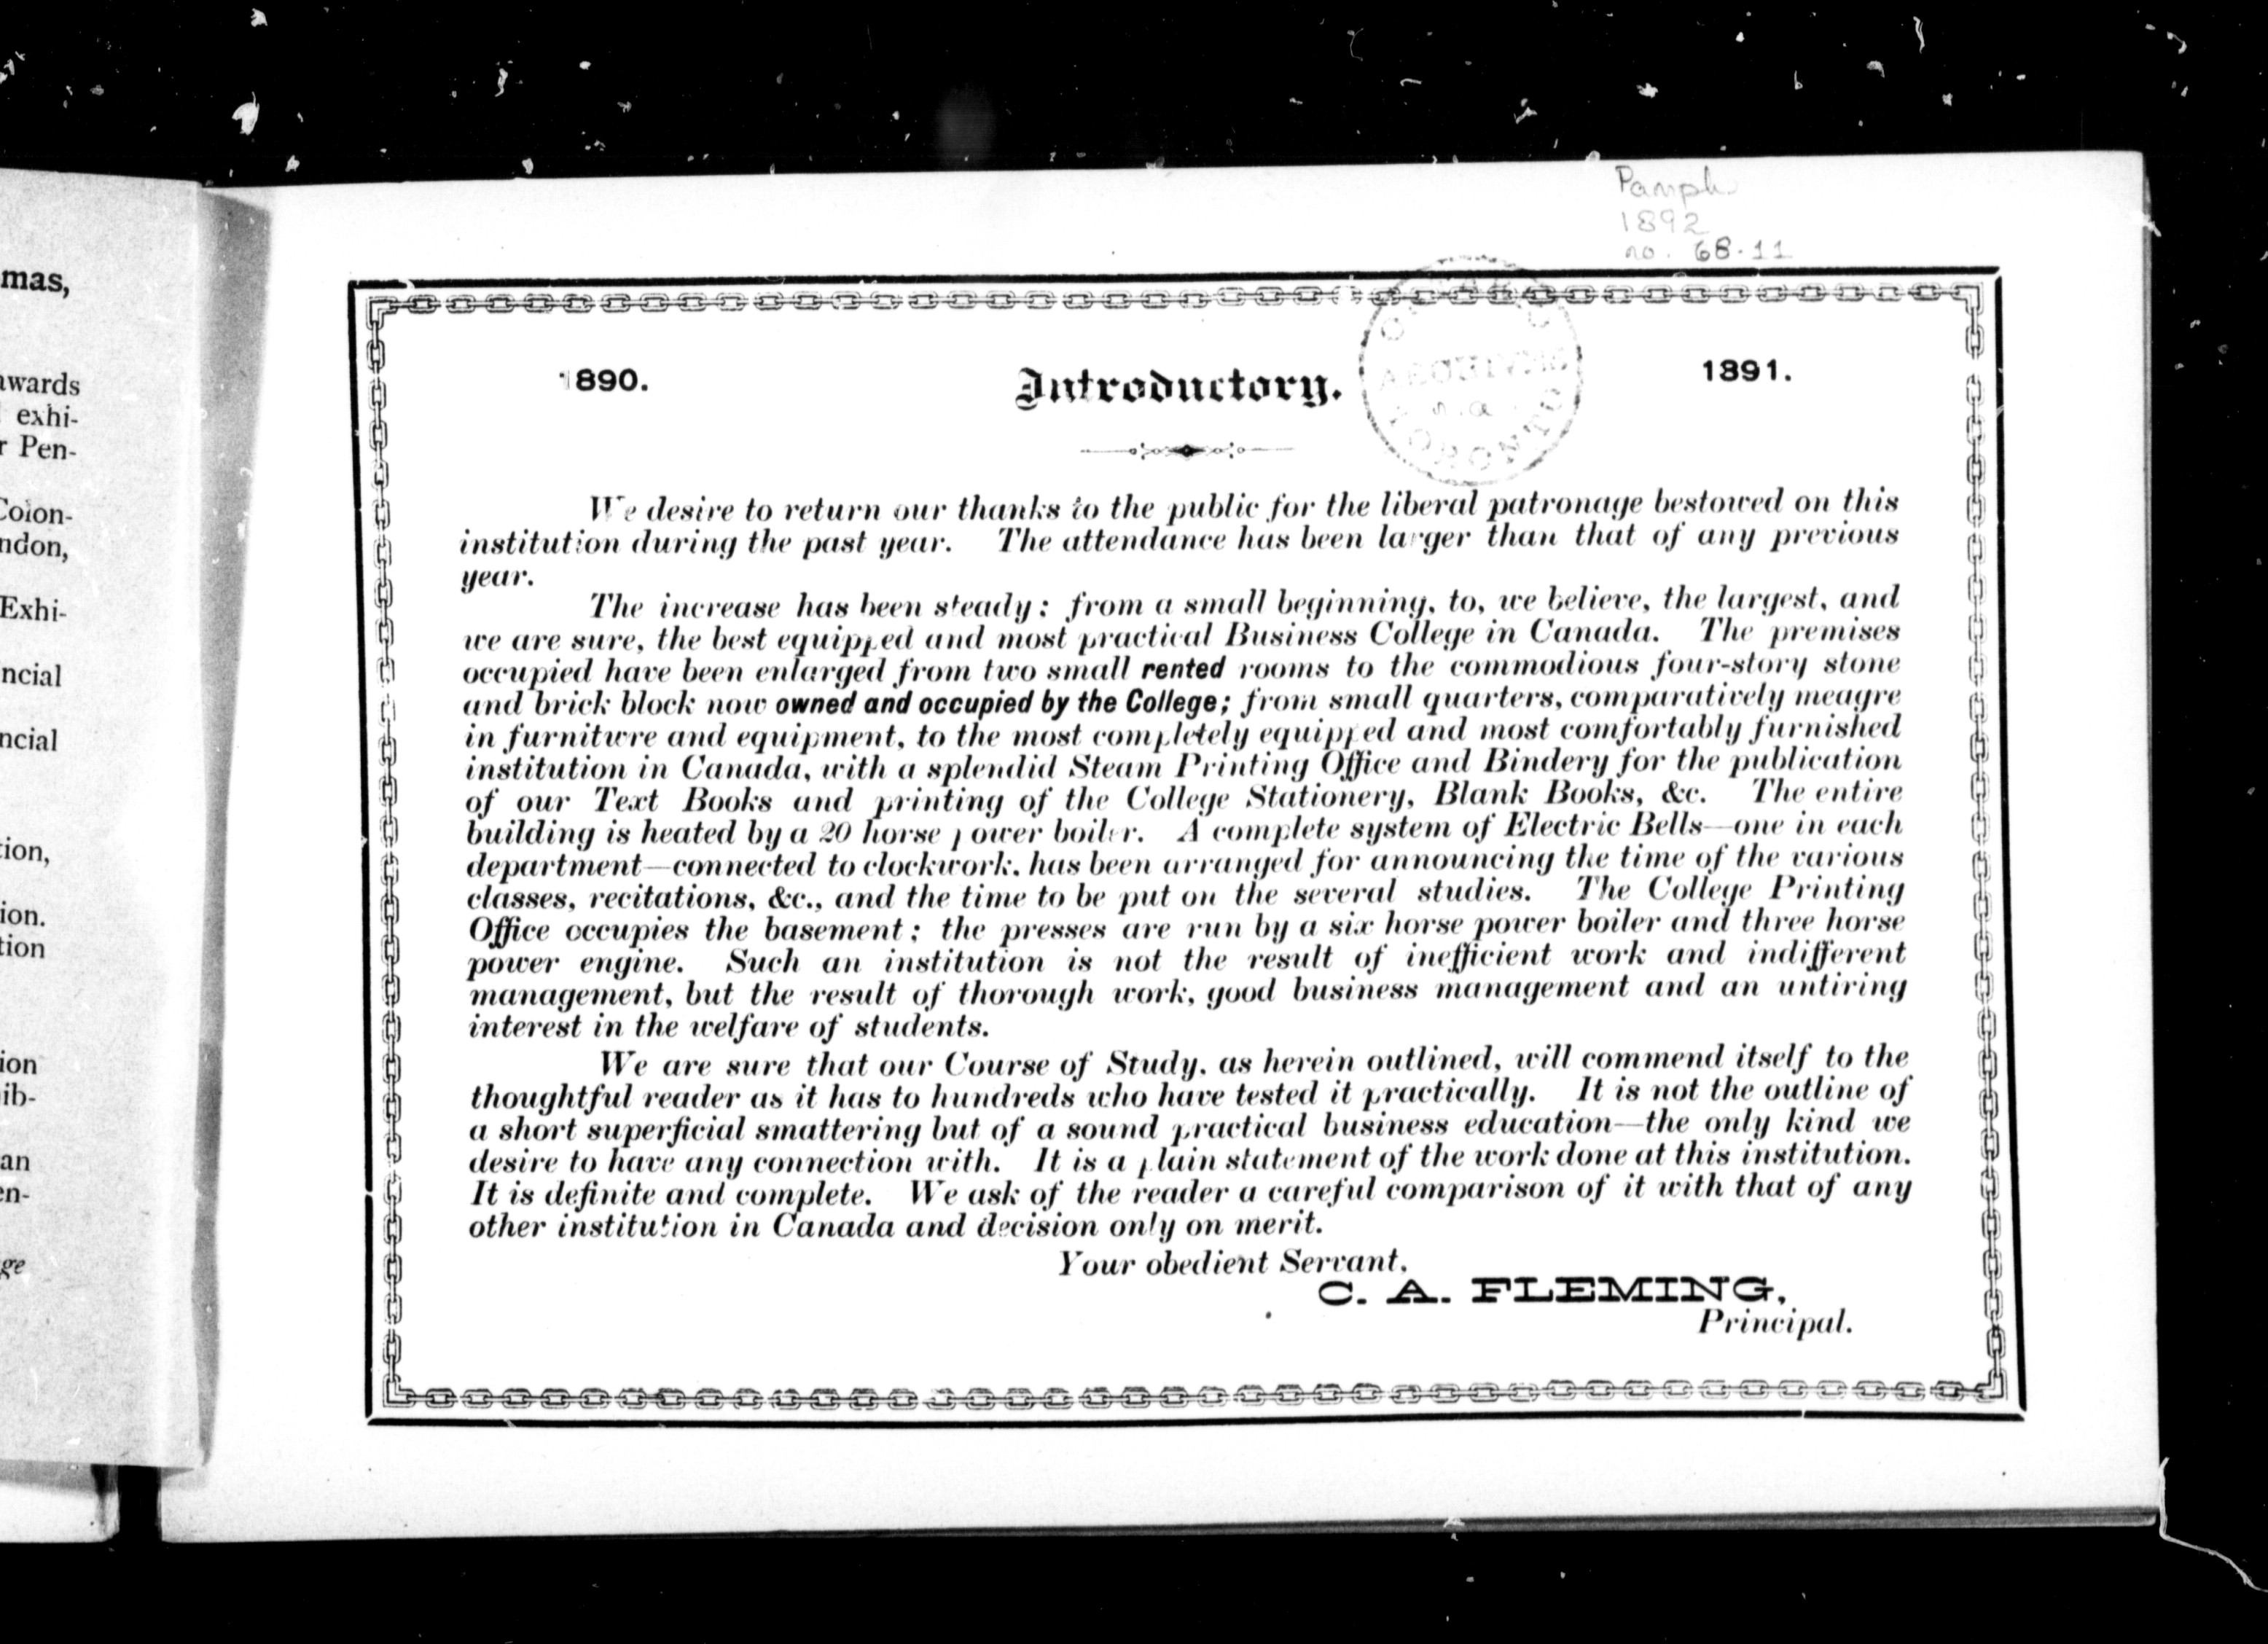 mas,
awards
exhi-
r Pen-
Colon-
ndon,
Exhi-
ncial
ncial
tion,
ion.
tion
ion
ib-
an
en-
ge
Pamph
1892
no. 68-11
1890. Introductory. 1891.
We desire to return our thanks to the public for the liberal patronage bestowed on this
institution during the past year. The attendance has been larger than that of any previous
year.
The increase has been steady; from a small beginning, to, we believe, the largest, and
we are sure, the best equipped and most practical Business College in Canada. The premises
occupied have been enlarged from two small rented rooms to the commodious four-story stone
and brick block now owned and occupied by the College; from small quarters, comparatively meagre
in furniture and equipment, to the most completely equipped and most comfortably furnished
institution in Canada, with a splendid Steam Printing Office and Bindery for the publication
of our Text Books and printing of the College Stationery, Blank Books, &c. The entire
building is heated by a 20 horse power boiler. A complete system of Electric Bells—one in each
department—connected to clockwork, has been arranged for announcing the time of the various
classes, recitations, &c., and the time to be put on the several studies. The College Printing
Office occupies the basement; the presses are run by a six horse power boiler and three horse
power engine. Such an institution is not the result of inefficient work and indifferent
management, but the result of thorough work, good business management and an untiring
interest in the welfare of students.
We are sure that our Course of Study, as herein outlined, will commend itself to the
thoughtful reader as it has to hundreds who have tested it practically. It is not the outline of
a short superficial smattering but of a sound practical business education—the only kind we
desire to have any connection with. It is a plain statement of the work done at this institution.
It is definite and complete. We ask of the reader a careful comparison of it with that of any
other institution in Canada and decision only on merit.
Your obedient Servant,
C. A. FLEMING,
Principal.